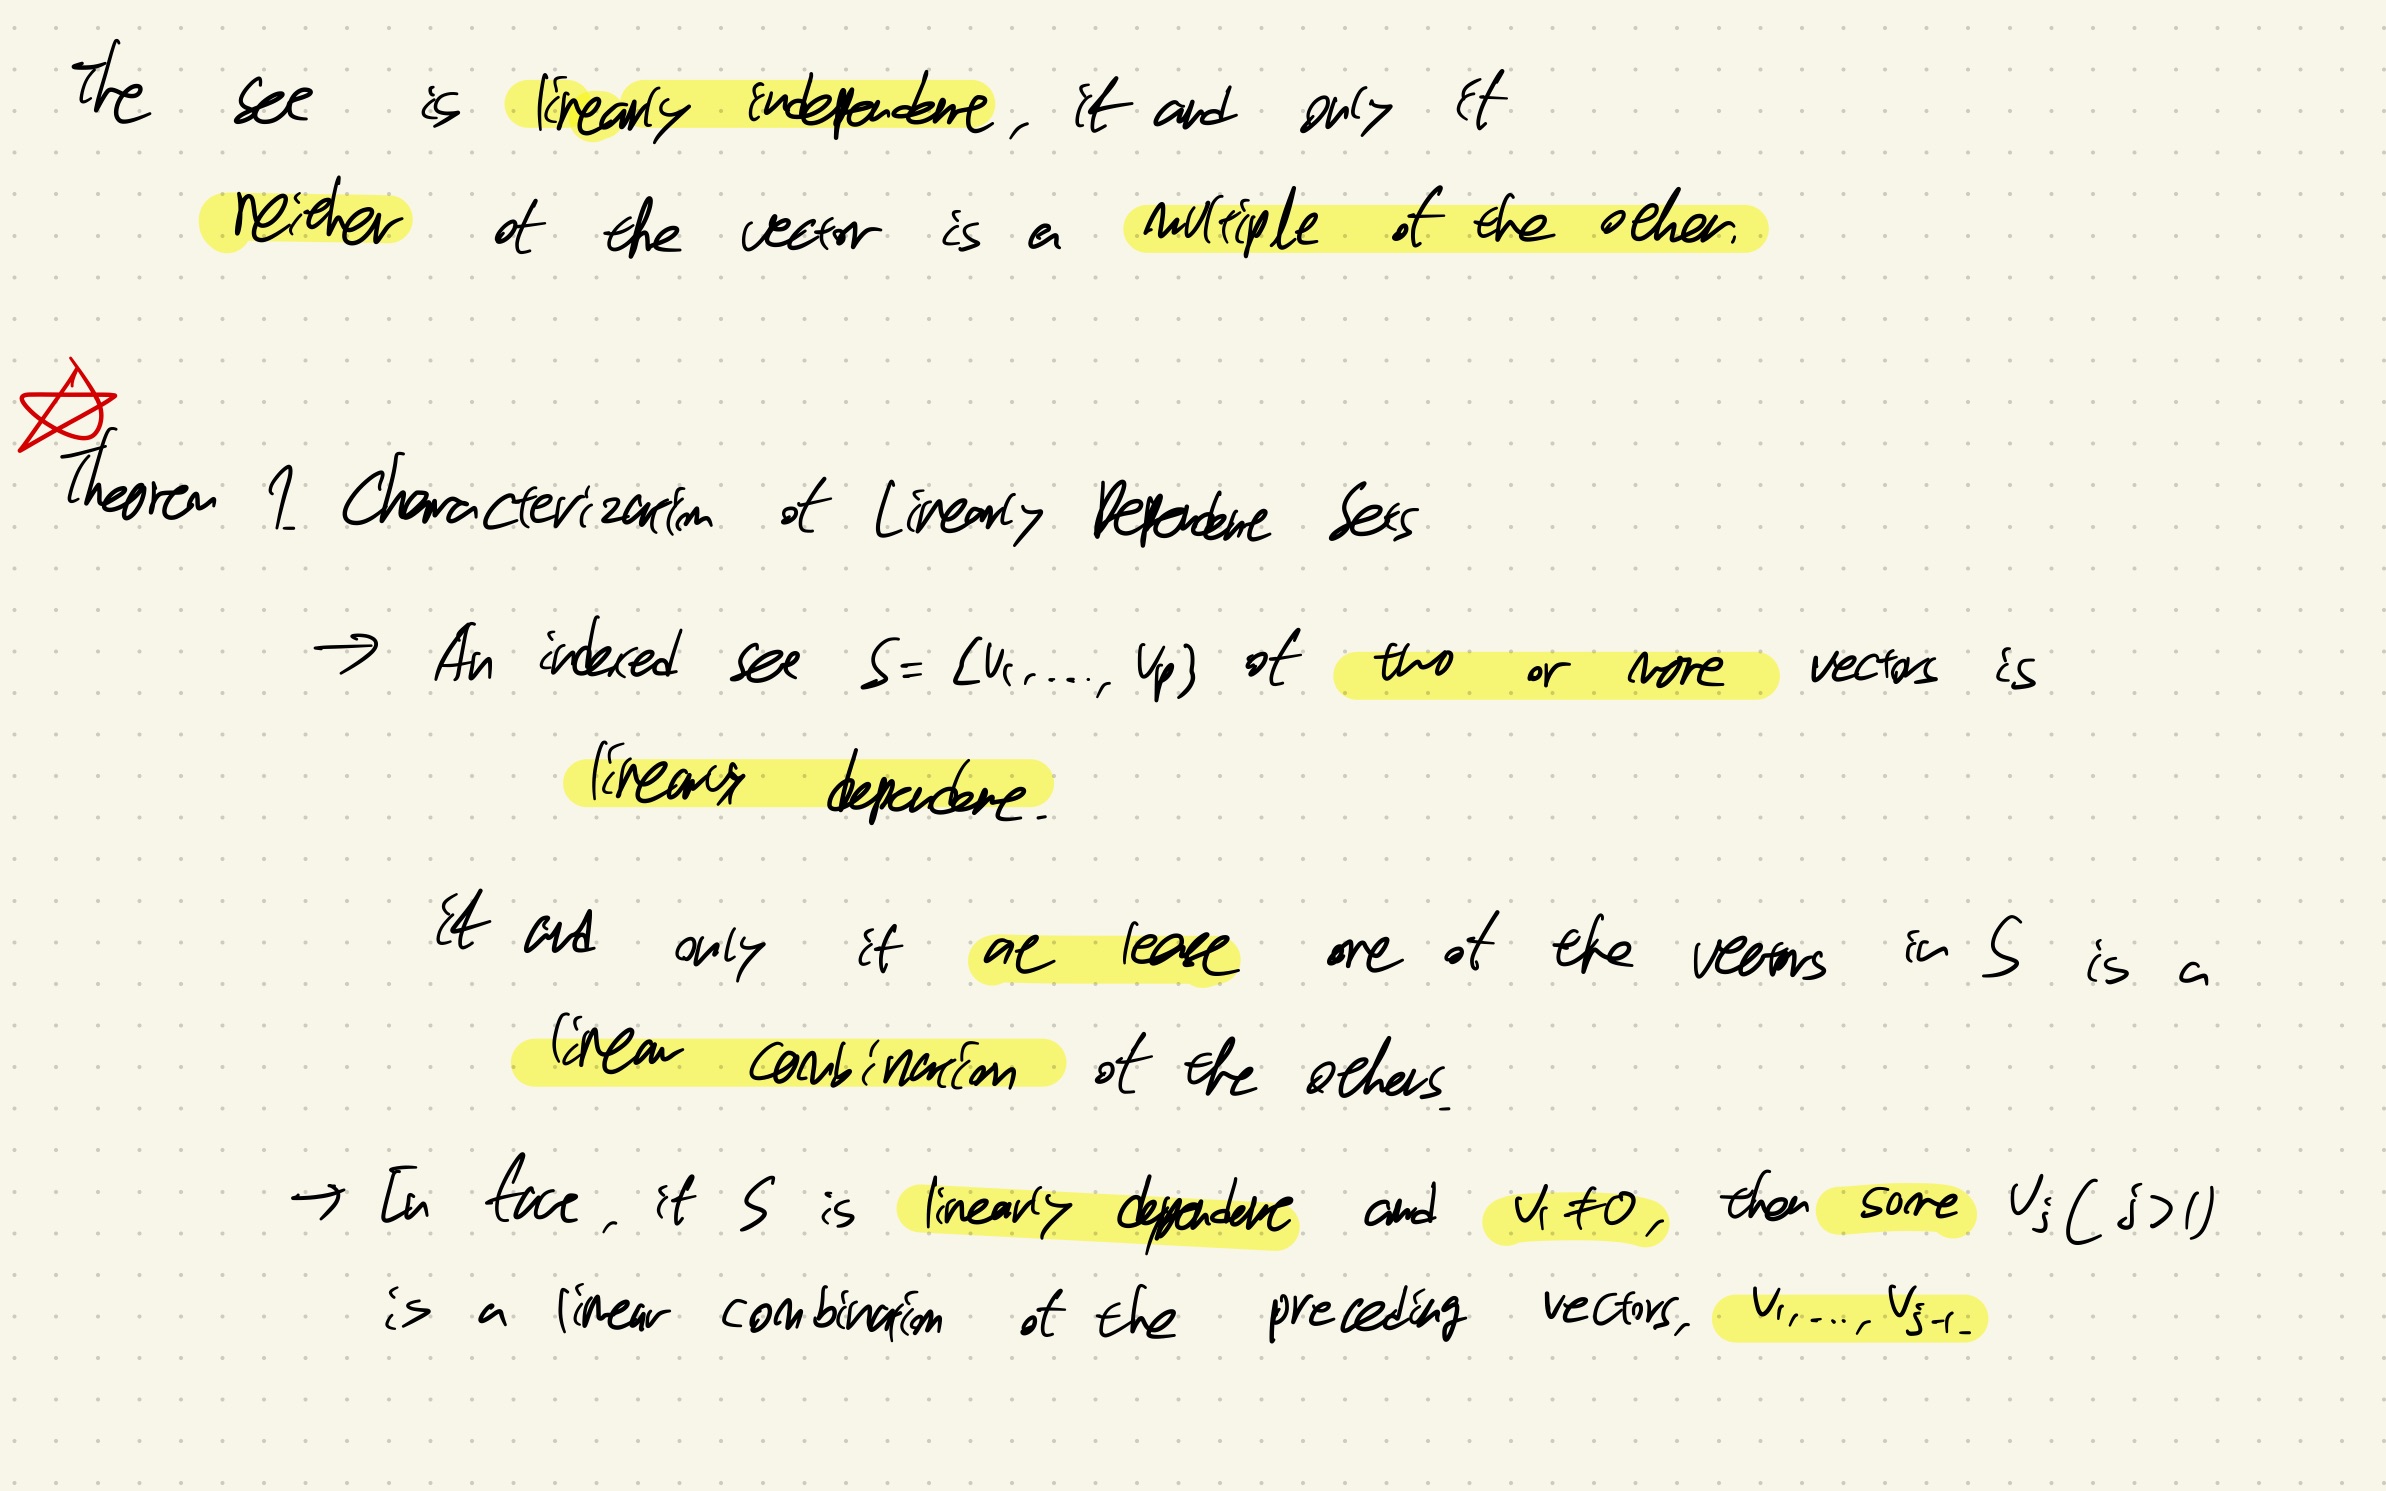 The set is linearly independent, if and only if
neither of the vector is a multiple of the other.
Theorem 7. Characterization of Linearly Dependent Sets
→ An indexed set S = {v₁, ..., vₚ} of two or more vectors is
linearly dependent.
if and only if at least one of the vectors in S is a
linear combination of the others.
→ In fact, if S is linearly dependent and v₁ ≠ 0, then some vⱼ (j>1)
is a linear combination of the preceding vectors, v₁, ..., vⱼ₋₁.